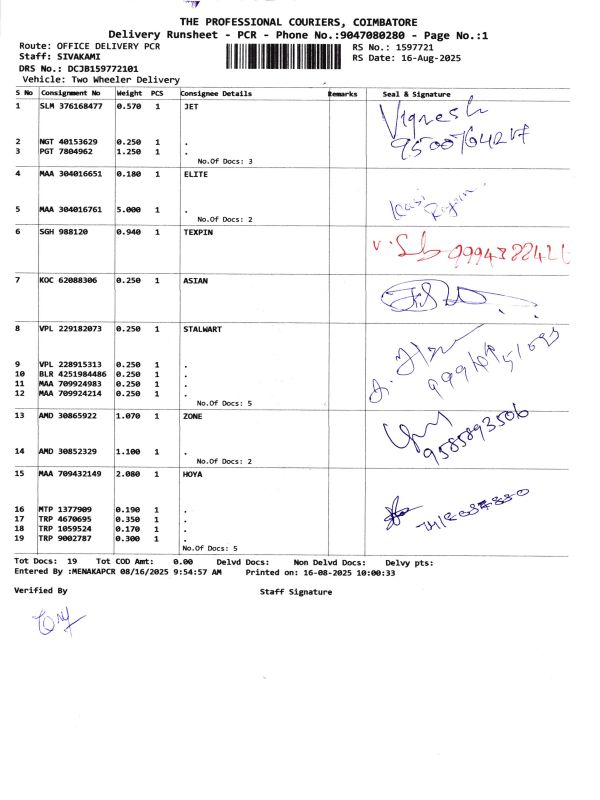 THE PROFESSIONAL COURIERS, COIMBATORE
Delivery Runsheet - PCR - Phone No.:9047080280 - Page No.:1
Route: OFFICE DELIVERY PCR
RS No.: 1597721
Staff: SIVAKAMI
RS Date: 16-Aug-2025
DRS No.: DCJB159772101
Vehicle: Two Wheeler Delivery
S No Consignment No Weight PCS Consignee Details Remarks Seal & Signature
1 SLM 376168477 0.570 1 JET Vignesh
2 NGT 40153629 0.250 1 .
3 PGT 7804962 1.250 1 .
No.Of Docs: 3
4 MAA 304016651 0.180 1 ELITE
5 MAA 304016761 5.000 1 .
No.Of Docs: 2
6 SGH 988120 0.940 1 TEXPIN
7 KOC 62088306 0.250 1 ASIAN
8 VPL 229182073 0.250 1 STALWART
9 VPL 228915313 0.250 1 .
10 BLR 4251984486 0.250 1 .
11 MAA 709924983 0.250 1 .
12 MAA 709924214 0.250 1 .
No.Of Docs: 5
13 AMD 30865922 1.070 1 ZONE 9585893506
14 AMD 30852329 1.100 1 .
No.Of Docs: 2
15 MAA 709432149 2.080 1 HOYA
16 MTP 1377909 0.190 1 .
17 TRP 4670695 0.350 1 .
18 TRP 1059524 0.170 1 .
19 TRP 9002787 0.300 1 .
No.Of Docs: 5
Tot Docs: 19 Tot COD Amt: 0.00 Delvd Docs: Non Delvd Docs: Delvy pts:
Entered By :MENAKAPCR 08/16/2025 9:54:57 AM Printed on: 16-08-2025 10:00:33
Verified By Staff Signature